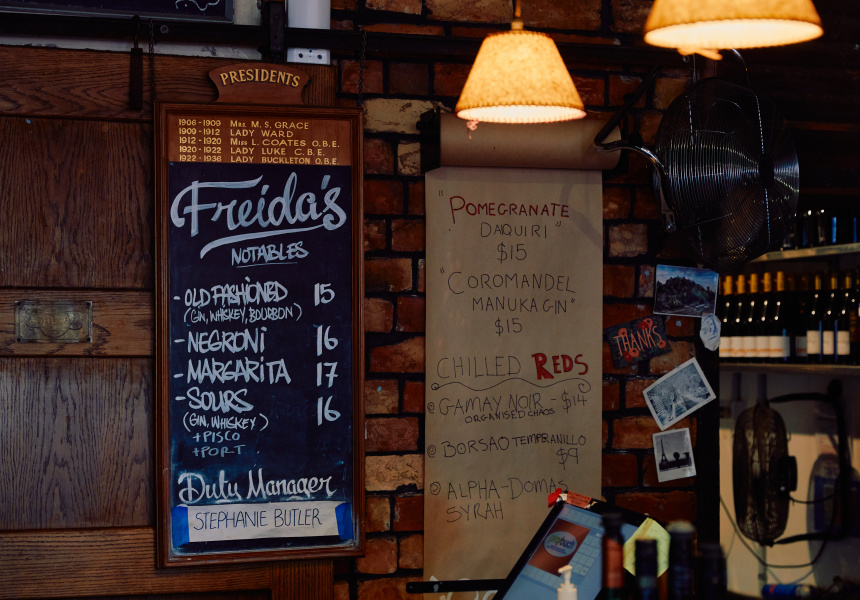 PRESIDENTS
1906-1909 MRS. M. S. GRACE
1909-1912 LADY WARD
1912-1920 MISS L. COATES O.B.E.
1920-1922 LADY LUKE C.B.E.
1922-1936 LADY BUCKLETON O.B.E.
Freida's
NOTABLES
- OLD FASHIONED 15
(GIN, WHISKEY, BOURBON)
- NEGRONI 16
- MARGARITA 17
- SOURS 16
(GIN, WHISKEY)
+PISCO
+PORT
Duty Manager
STEPHANIE BUTLER
"POMEGRANATE
DAIQUIRI"
$15
"COROMANDEL
MANUKA GIN"
$15
CHILLED REDS
GAMAY NOIR - $14
ORGANISED CHAOS
BORSAO TEMPRANILLO
$9
ALPHA-DOMAS
SYRAH
THANKS